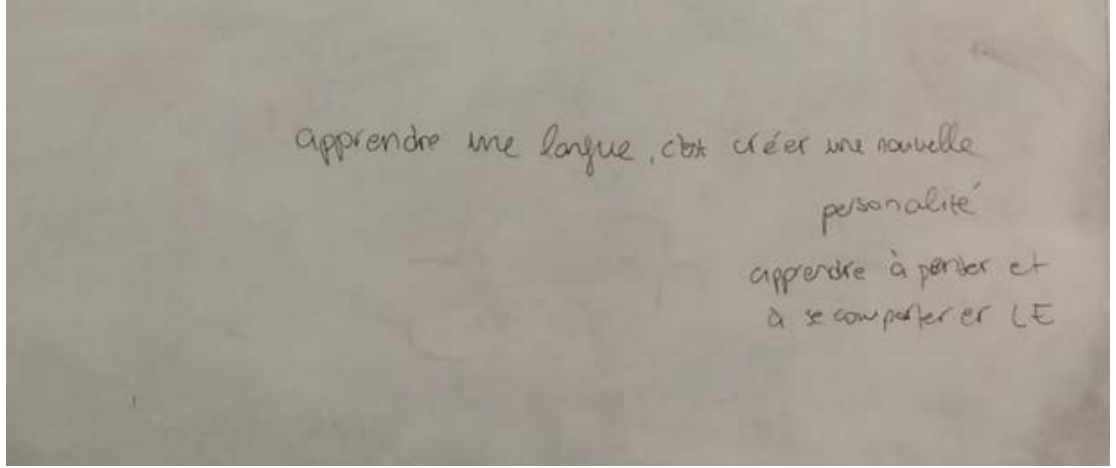 apprendre une langue, c'est créer une nouvelle
personalité
apprendre à penser et
à se comporter en LE